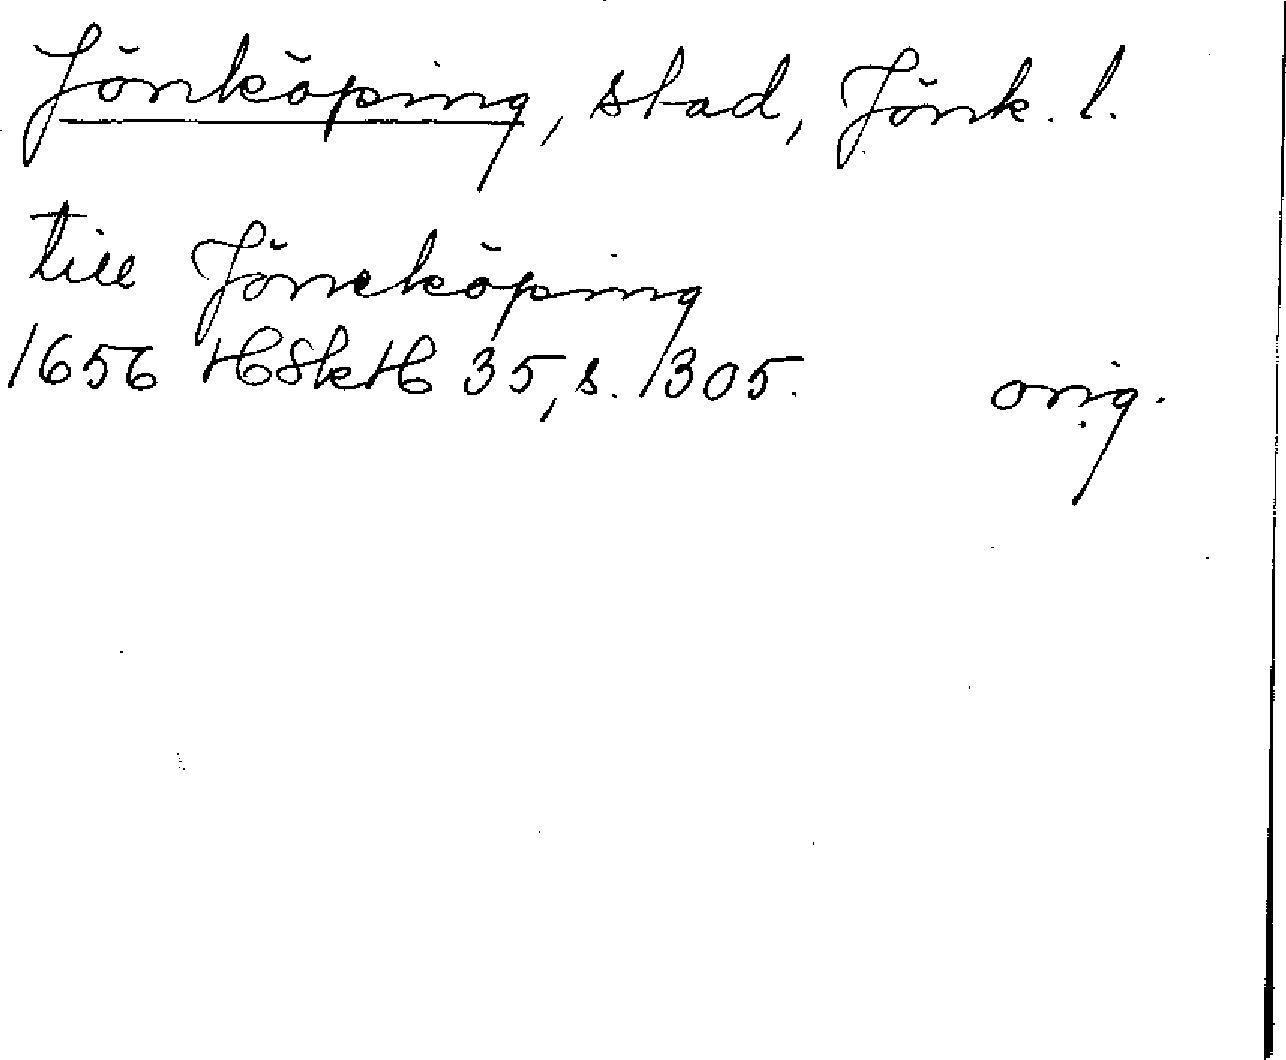 Jönköping, stad, Jönk. l.
till Jöneköping
1656 HSkH 35, s. 305. orig.